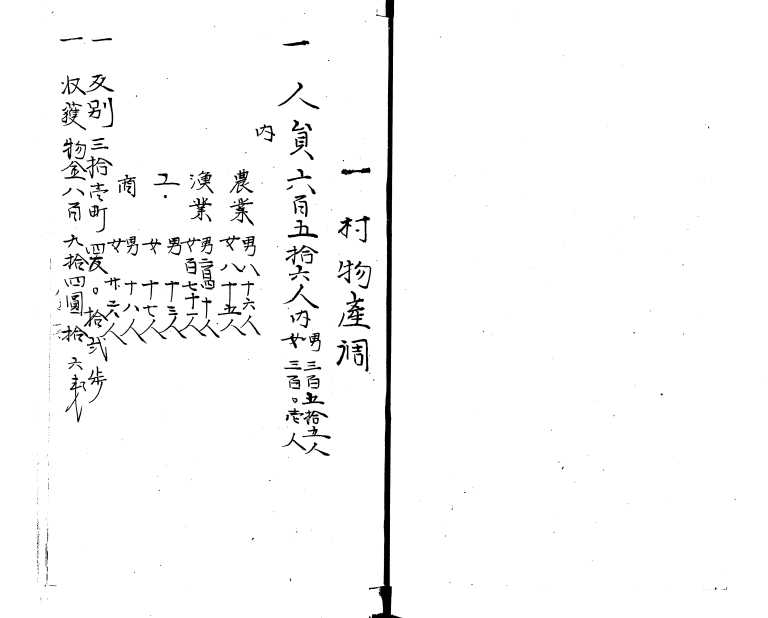 一 村物産調
一 人員六百五拾六人内
男三百五拾五人
女三百〇壱人
内
農業
男八十六人
女八十五人
漁業
男二百四十人
女百七十一人
工
男十三人
女十七人
商
男十八人
女廿六人
一 反別三拾壱町四反〇拾弐歩
一 収獲物金八百九拾四圓拾六